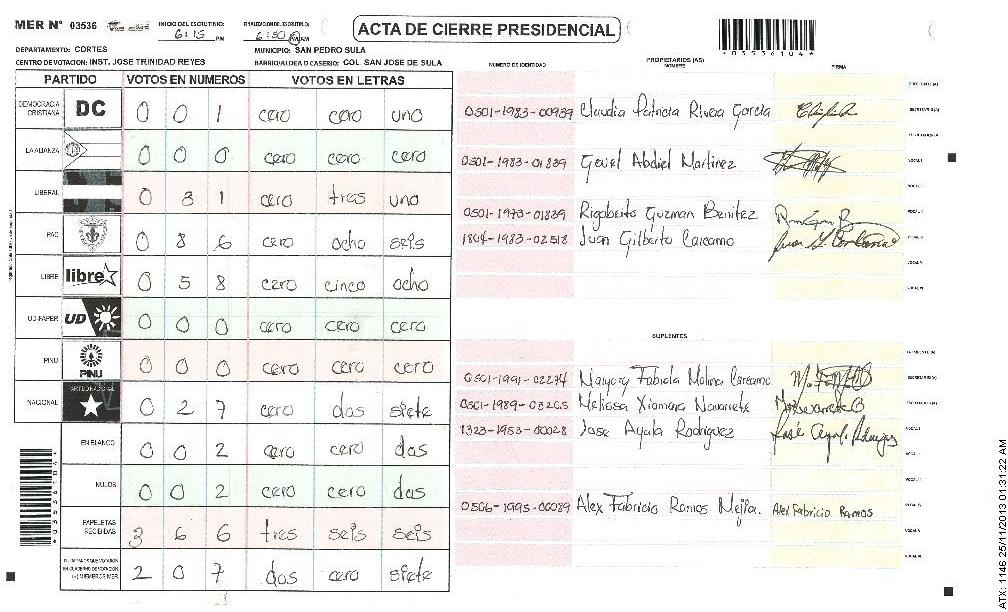 MER N° 03536
INICIO DEL ESCRUTINIO: 6:15 PM
FINALIZACION DEL ESCRUTINIO: 6:50 PM/AM
ACTA DE CIERRE PRESIDENCIAL
*03536104*
DEPARTAMENTO: CORTES
MUNICIPIO: SAN PEDRO SULA
CENTRO DE VOTACION: INST. JOSE TRINIDAD REYES
BARRIO/ALDEA O CASERIO: COL. SAN JOSE DE SULA
PARTIDO VOTOS EN NUMEROS VOTOS EN LETRAS
DEMOCRACIA CRISTIANA DC 0 0 1 cero cero uno
LA ALIANZA 0 0 0 cero cero cero
LIBERAL 0 31 cero tres uno
PAC 0 8 6 cero ocho seis
LIBRE libre 0 5 8 cero cinco ocho
UD-FAPER UD 0 0 0 cero cero cero
PINU PINU 0 0 0 cero cero cero
NACIONAL 0 2 7 cero dos siete
EN BLANCO 0 0 2 cero cero dos
NULOS 0 0 2 cero cero dos
PAPELETAS RECIBIDAS 3 6 6 tres seis seis
CIUDADANOS QUE VOTARON EN CUADERNO DE VOTACION (+) MIEMBROS MER 2 0 7 dos cero siete
NUMERO DE IDENTIDAD PROPIETARIOS (AS) NOMBRE FIRMA
PRESIDENTE (A)
0501-1983-00939 Claudia Patricia Rivera García SECRETARIO (A)
0501-1983-01839 Geviel Abdiel Martinez VOCAL I
VOCAL II
0501-1973-01829 Rigoberto Guzman Benitez
1804-1983-02518 Juan Gilberto Carcamo
VOCAL V
VOCAL VI
SUPLENTES
PRESIDENTE (A)
0501-1991-02274 Maryory Fabiola Molina Carcamo SECRETARIO (A)
0501-1989-03205 Melissa Xiomara Navarrete
1323-1953-00028 Jose Ayala Rodriguez VOCAL I
VOCAL II
0506-1995-00089 Alex Fabricio Ramos Mejia. Alex Fabricio Ramos
VOCAL V
VOCAL VI
*03536104*
ATX: 1146 25/11/2013 01:31:22 AM